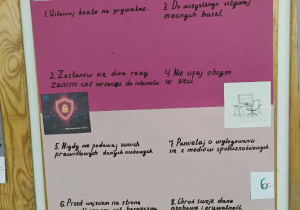 1. Ustawiaj konto na prywatne.
3. Do wszystkiego używaj
mocnych haseł.
2. Zastanów się dwa razy
zanim coś wrzucisz do internetu.
4. Nie ufaj obcym
w sieci.
5. Nigdy nie podawaj swoich
prawdziwych danych osobowych
7. Pamiętaj o wylogowaniu
się z mediów społecznościowych
6
6. Przed wejściem na stronę
8. Chroń swoje dane
osobowe i prywatność